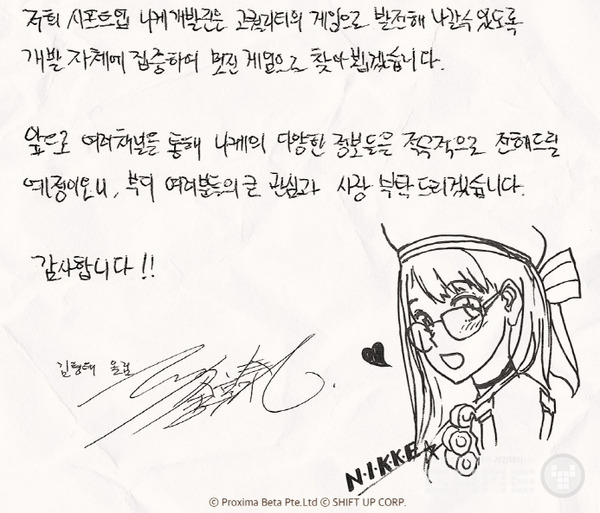 저희 시프트업 니케개발진은 고퀄리티의 게임으로 발전해 나갈수 있도록
개발 자체에 집중하여 멋진 게임으로 찾아 뵙겠습니다.
앞으로 여러채널을 통해 니케의 다양한 정보들을 적극적으로 전해드릴
예정이오니, 부디 여러분들의 큰 관심과 사랑 부탁 드리겠습니다.
감사합니다!!
김형태 올림
N·I·K·K·E
ⓒ Proxima Beta Pte.Ltd ⓒ SHIFT UP CORP.